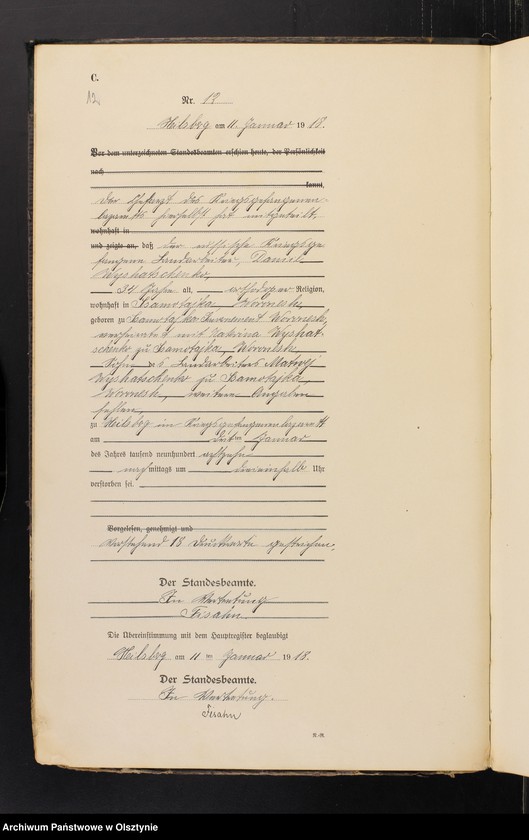 C.
12
Nr. 19
Heilsberg am 11. Januar 1918.
Vor dem unterzeichneten Standesbeamten erschien heute, der Persönlichkeit
nach
kannt,
Der Chefarzt des Kriegsgefangenen-
lagers hierselbst hat mitgeteilt,
wohnhaft in
und zeigte an, daß der russische Kriegsge
fangene Landarbeiter, Daniel
Wyshatschenko,
34 Jahre alt, orthodoxer Religion,
wohnhaft in Samotajka Woronesh,
geboren zu Samotajka Woronesh,
verheiratet mit Katrina Wyshat
schenko zu Samotajka, Woronesh,
Sohn des Landarbeiters Matwej
Wyshatschenko zu Samotajka,
Woronesh, weitere Angaben
fehlen,
zu Heilsberg im Kriegsgefangenenlager
am Januar
des Jahres tausend neunhundert achtzehn
nachmittags um dreieinhalb Uhr
verstorben sei.
Vorgelesen, genehmigt und
Vorstehend 13 Druckworte gestrichen.
Der Standesbeamte.
In Vertretung
Fisahn.
Die Übereinstimmung mit dem Hauptregister beglaubigt
Heilsberg am 11 ten Januar 1918.
Der Standesbeamte.
In Vertretung.
Fisahn
Archiwum Państwowe w Olsztynie